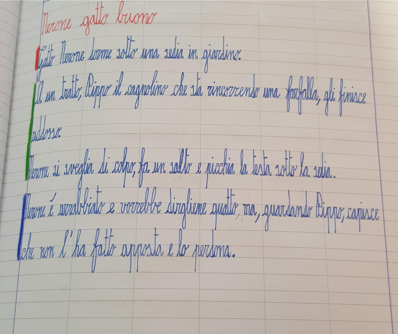 Nerone gatto buono
gatto Nerone dorme sotto una sedia in giardino.
Ad un tratto, Pippo il cagnolino che sta rincorrendo una farfalla, gli finisce
addosso.
Nerone si sveglia di colpo, fa un salto e picchia la testa sotto la sedia.
Nerone è arrabbiato e vorrebbe dirgliene quattro, ma, guardando Pippo, capisce
che non l'ha fatto apposta e lo perdona.